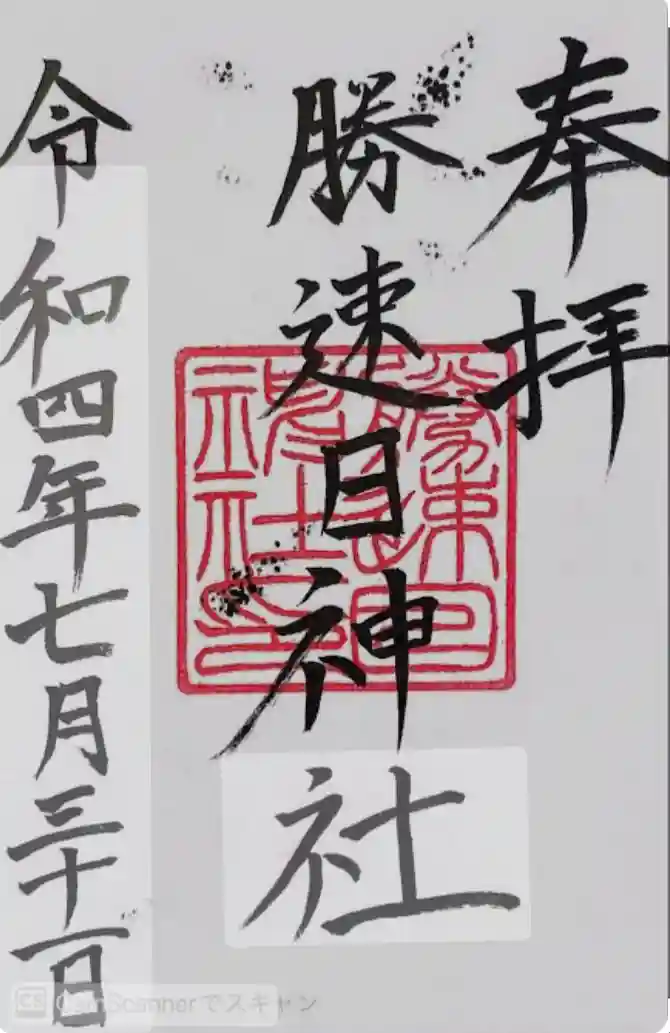 奉拝
勝速日神社
令和四年七月三十一日
CS CamScannerでスキャン